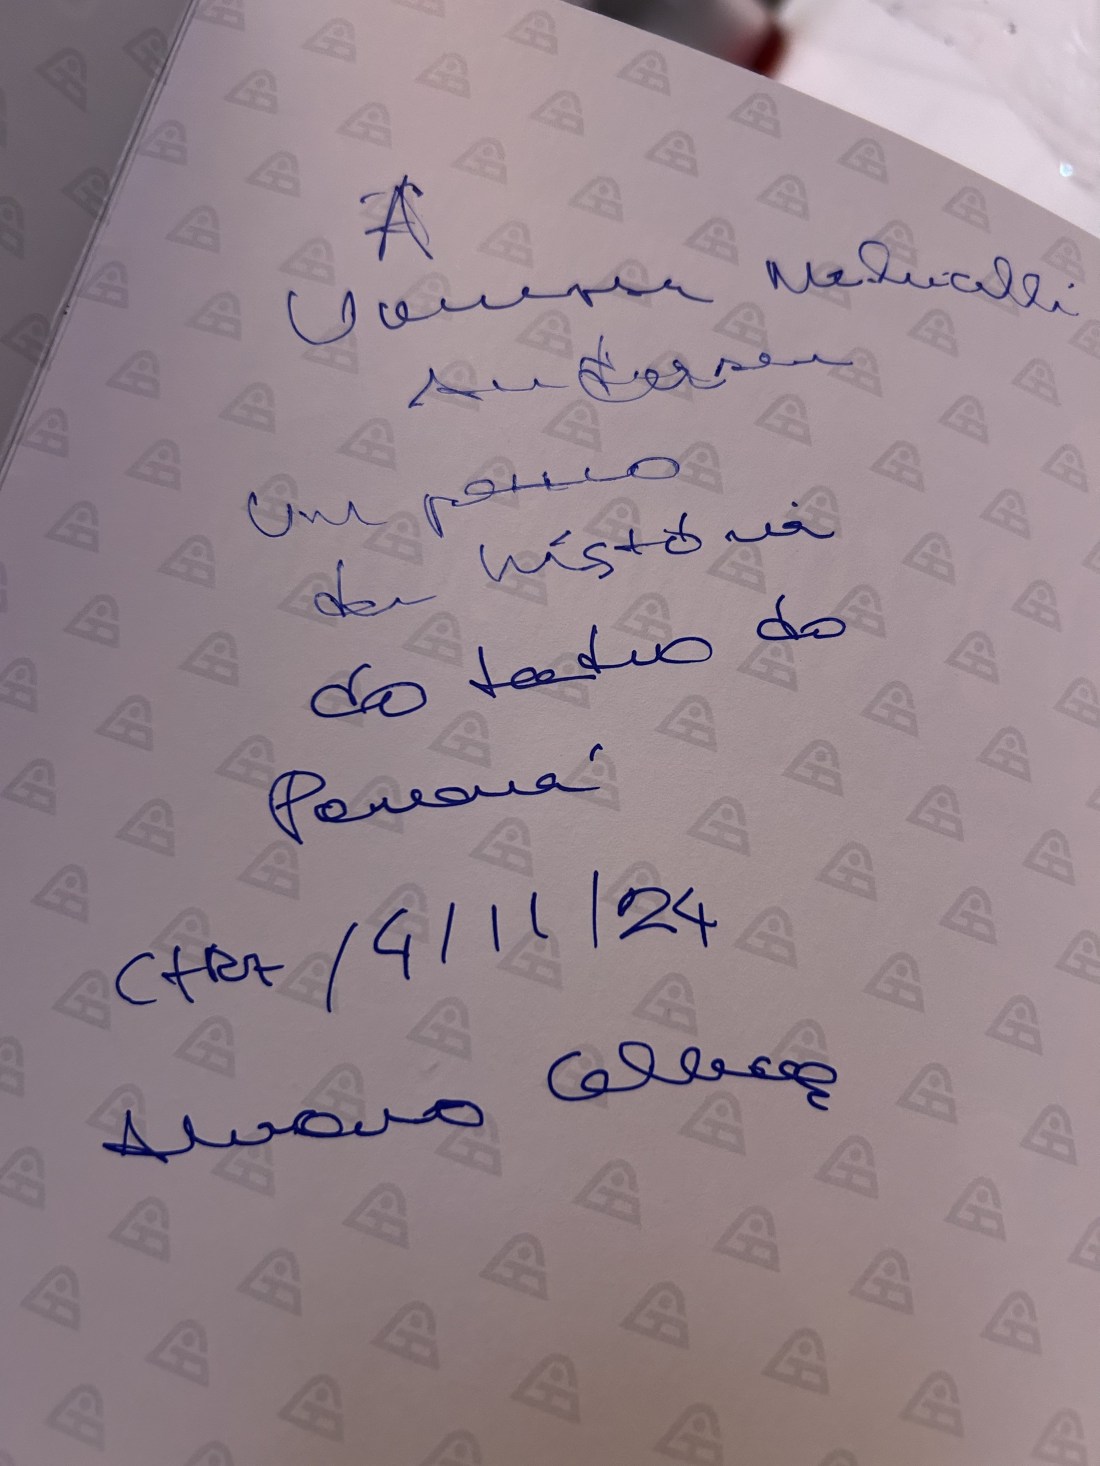 À
Vanessa
Andersen
um pouco
da história
do teatro do
Paraná
CTBA / 4/11/24
Alvaro Collaço